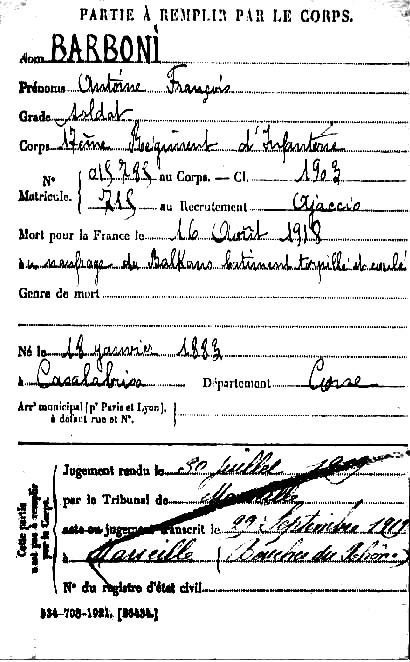 PARTIE À REMPLIR PAR LE CORPS.
Nom BARBONI
Prénoms Antoine François
Grade Soldat
Corps 17ème Régiment d'Infanterie
N° Matricule. 015.785 au Corps. — Cl. 1903
715 au Recrutement Ajaccio
Mort pour la France le 16 Août 1918
au naufrage du Balkans bâtiment torpillé et coulé
Genre de mort
Né le 18 janvier 1883
à Casalabriva Département Corse
Arr' municipal (p' Paris et Lyon),
à défaut rue et N°.
Cette partie
n'est pas à remplir
par le Corps.
Jugement rendu le 30 juillet 1919
par le Tribunal de Marseille
acte ou jugement transcrit le 22 Septembre 1919
à Marseille (Bouches du Rhône)
N° du registre d'état civil
534-708-1921. [26434.]